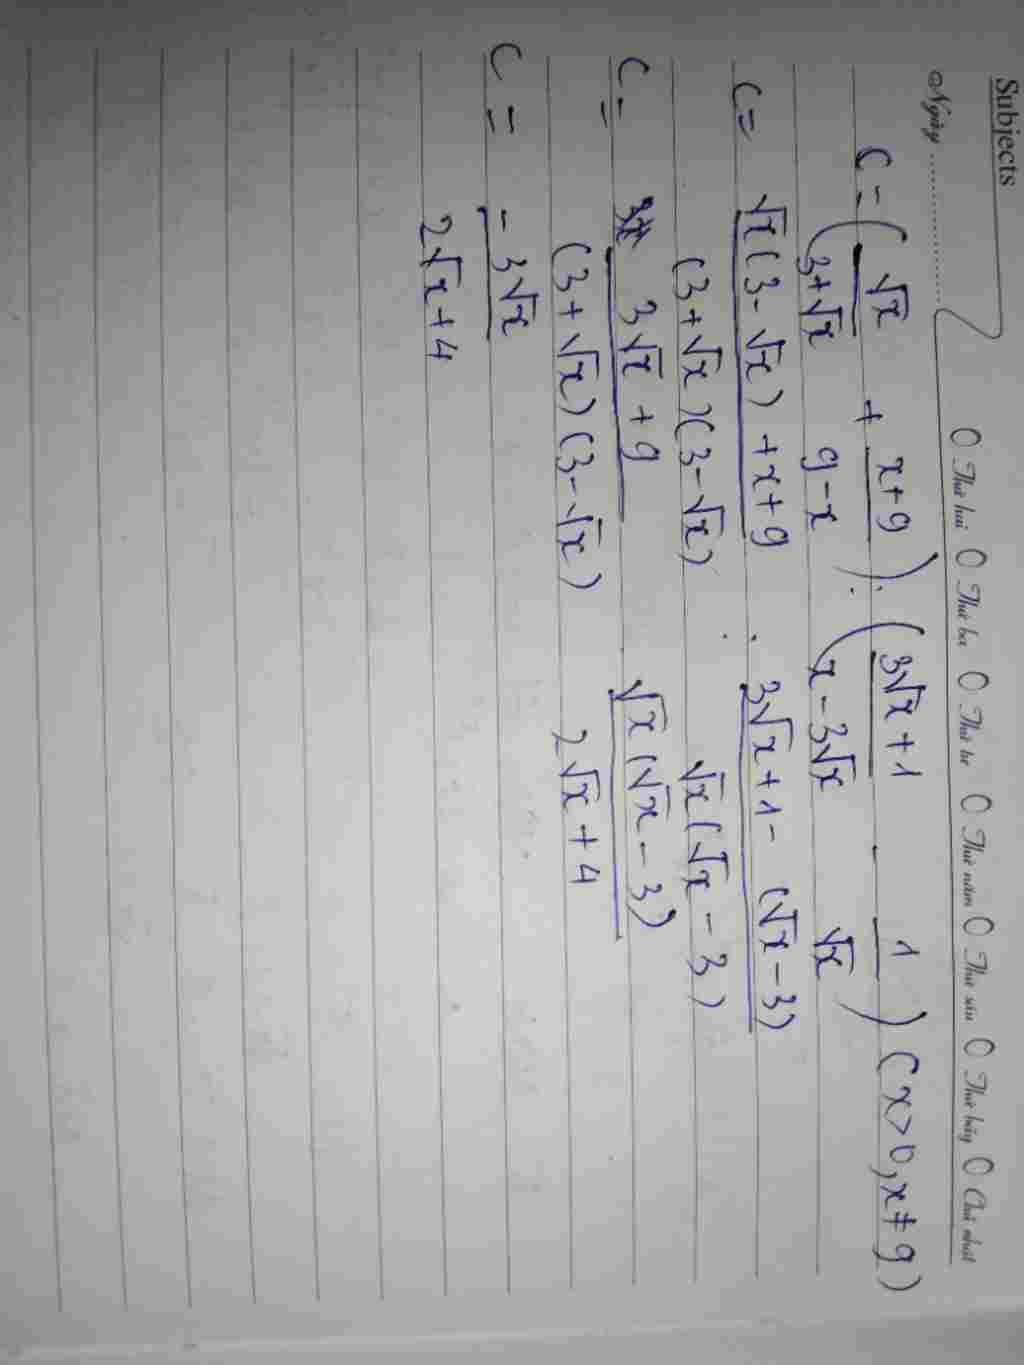 Subjects
Ngày ............ Thứ hai Thứ ba Thứ tư Thứ năm Thứ sáu Thứ bảy Chủ nhật
C = (√x/(3+√x) + (x+9)/(9-x)) : ((3√x+1)/(x-3√x) - 1/√x) (x>0, x≠9)
C = (√x(3-√x)+x+9)/((3+√x)(3-√x)) : (3√x+1-(√x-3))/(√x(√x-3))
C = (3√x+9)/((3+√x)(3-√x)) . (√x(√x-3))/(2√x+4)
C = (-3√x)/(2√x+4)